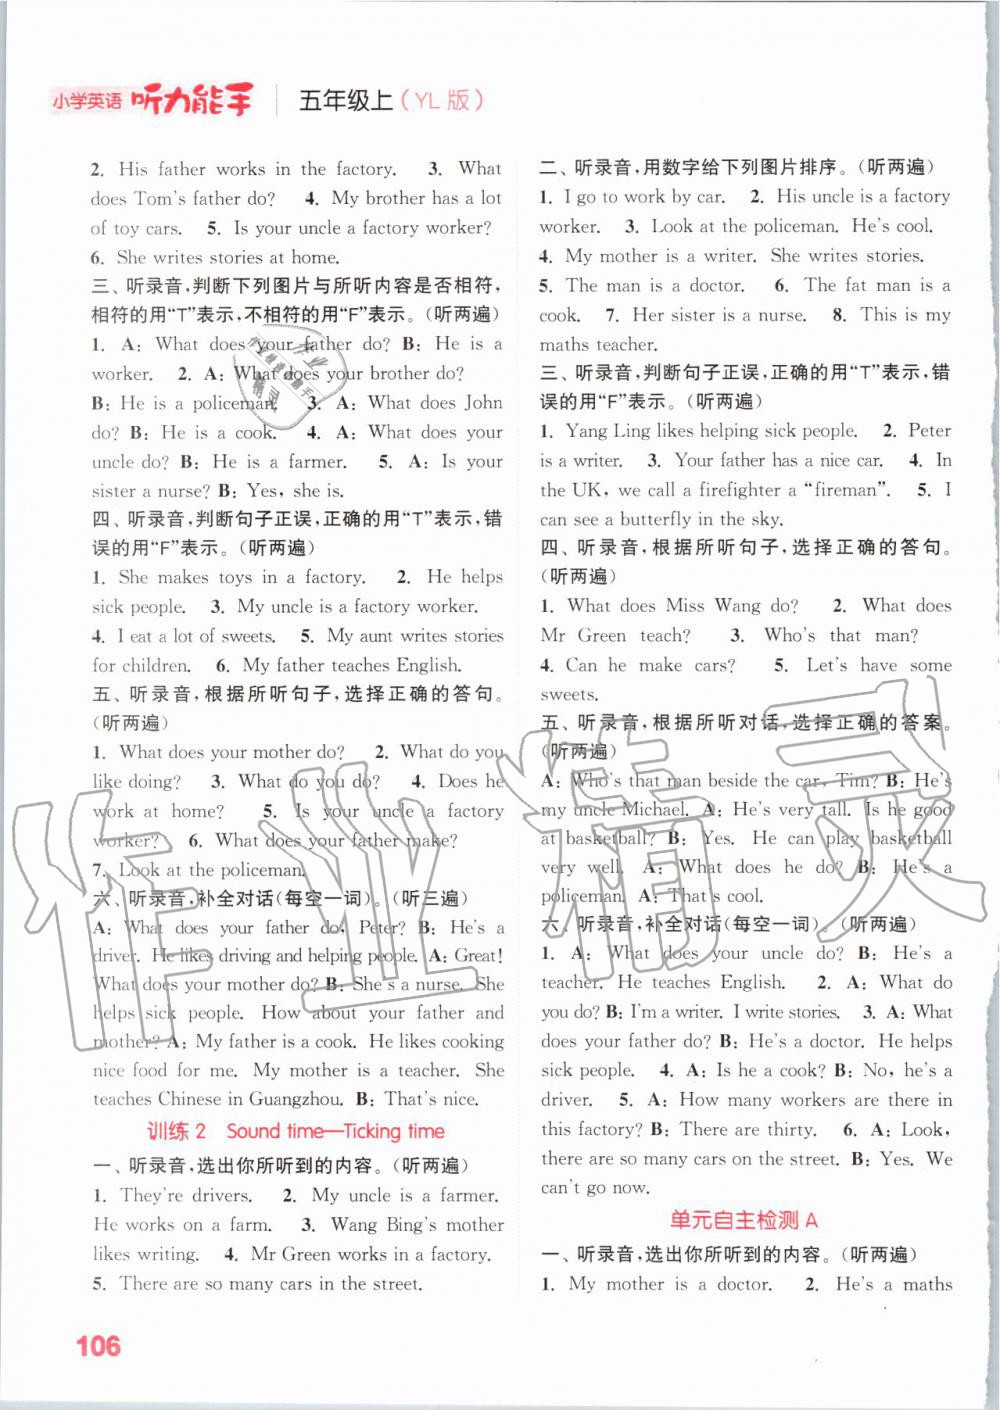 小学英语 听力能手 五年级上(YL版)
2. His father works in the factory. 3. What
does Tom's father do? 4. My brother has a lot
of toy cars. 5. Is your uncle a factory worker?
6. She writes stories at home.
三、听录音,判断下列图片与所听内容是否相符,
相符的用“T”表示,不相符的用“F”表示。(听两遍)
1. A: What does your father do? B: He is a
worker. 2. A: What does your brother do?
B: He is a policeman. 3. A: What does John
do? B: He is a cook. 4. A: What does your
uncle do? B: He is a farmer. 5. A: Is your
sister a nurse? B: Yes, she is.
四、听录音,判断句子正误,正确的用“T”表示,错
误的用“F”表示。(听两遍)
1. She makes toys in a factory. 2. He helps
sick people. 3. My uncle is a factory worker.
4. I eat a lot of sweets. 5. My aunt writes stories
for children. 6. My father teaches English.
五、听录音,根据所听句子,选择正确的答句。
(听两遍)
1. What does your mother do? 2. What do you
like doing? 3. What do you do? 4. Does he
work at home? 5. Is your uncle a factory
worker? 6. What does your father make?
7. Look at the policeman.
六、听录音,补全对话(每空一词)。(听三遍)
A: What does your father do, Peter? B: He's a
driver. He likes driving and helping people. A: Great!
What does your mother do? B: She's a nurse. She
helps sick people. How about your father and
mother? A: My father is a cook. He likes cooking
nice food for me. My mother is a teacher. She
teaches Chinese in Guangzhou. B: That's nice.
训练2 Sound time—Ticking time
一、听录音,选出你所听到的内容。(听两遍)
1. They're drivers. 2. My uncle is a farmer.
He works on a farm. 3. Wang Bing's mother
likes writing. 4. Mr Green works in a factory.
5. There are so many cars in the street.
二、听录音,用数字给下列图片排序。(听两遍)
1. I go to work by car. 2. His uncle is a factory
worker. 3. Look at the policeman. He's cool.
4. My mother is a writer. She writes stories.
5. The man is a doctor. 6. The fat man is a
cook. 7. Her sister is a nurse. 8. This is my
maths teacher.
三、听录音,判断句子正误,正确的用“T”表示,错
误的用“F”表示。(听两遍)
1. Yang Ling likes helping sick people. 2. Peter
is a writer. 3. Your father has a nice car. 4. In
the UK, we call a firefighter a “fireman”. 5. I
can see a butterfly in the sky.
四、听录音,根据所听句子,选择正确的答句。
(听两遍)
1. What does Miss Wang do? 2. What does
Mr Green teach? 3. Who's that man?
4. Can he make cars? 5. Let's have some
sweets.
五、听录音,根据所听对话,选择正确的答案。
(听两遍)
A: Who's that man beside the car, Tim? B: He's
my uncle Michael. A: He's very tall. Is he good
at basketball? B: Yes. He can play basketball
very well. A: What does he do? B: He's a
policeman. A: That's cool.
六、听录音,补全对话(每空一词)。(听两遍)
1. A: What does your uncle do? B: He's a
teacher. He teaches English. 2. A: What do
you do? B: I'm a writer. I write stories. 3. A: What
does your father do? B: He's a doctor. He helps
sick people. 4. A: Is he a cook? B: No, he's a
driver. 5. A: How many workers are there in
this factory? B: There are thirty. 6. A: Look,
there are so many cars on the street. B: Yes. We
can't go now.
单元自主检测A
一、听录音,选出你所听到的内容。(听两遍)
1. My mother is a doctor. 2. He's a maths
106
作业精灵